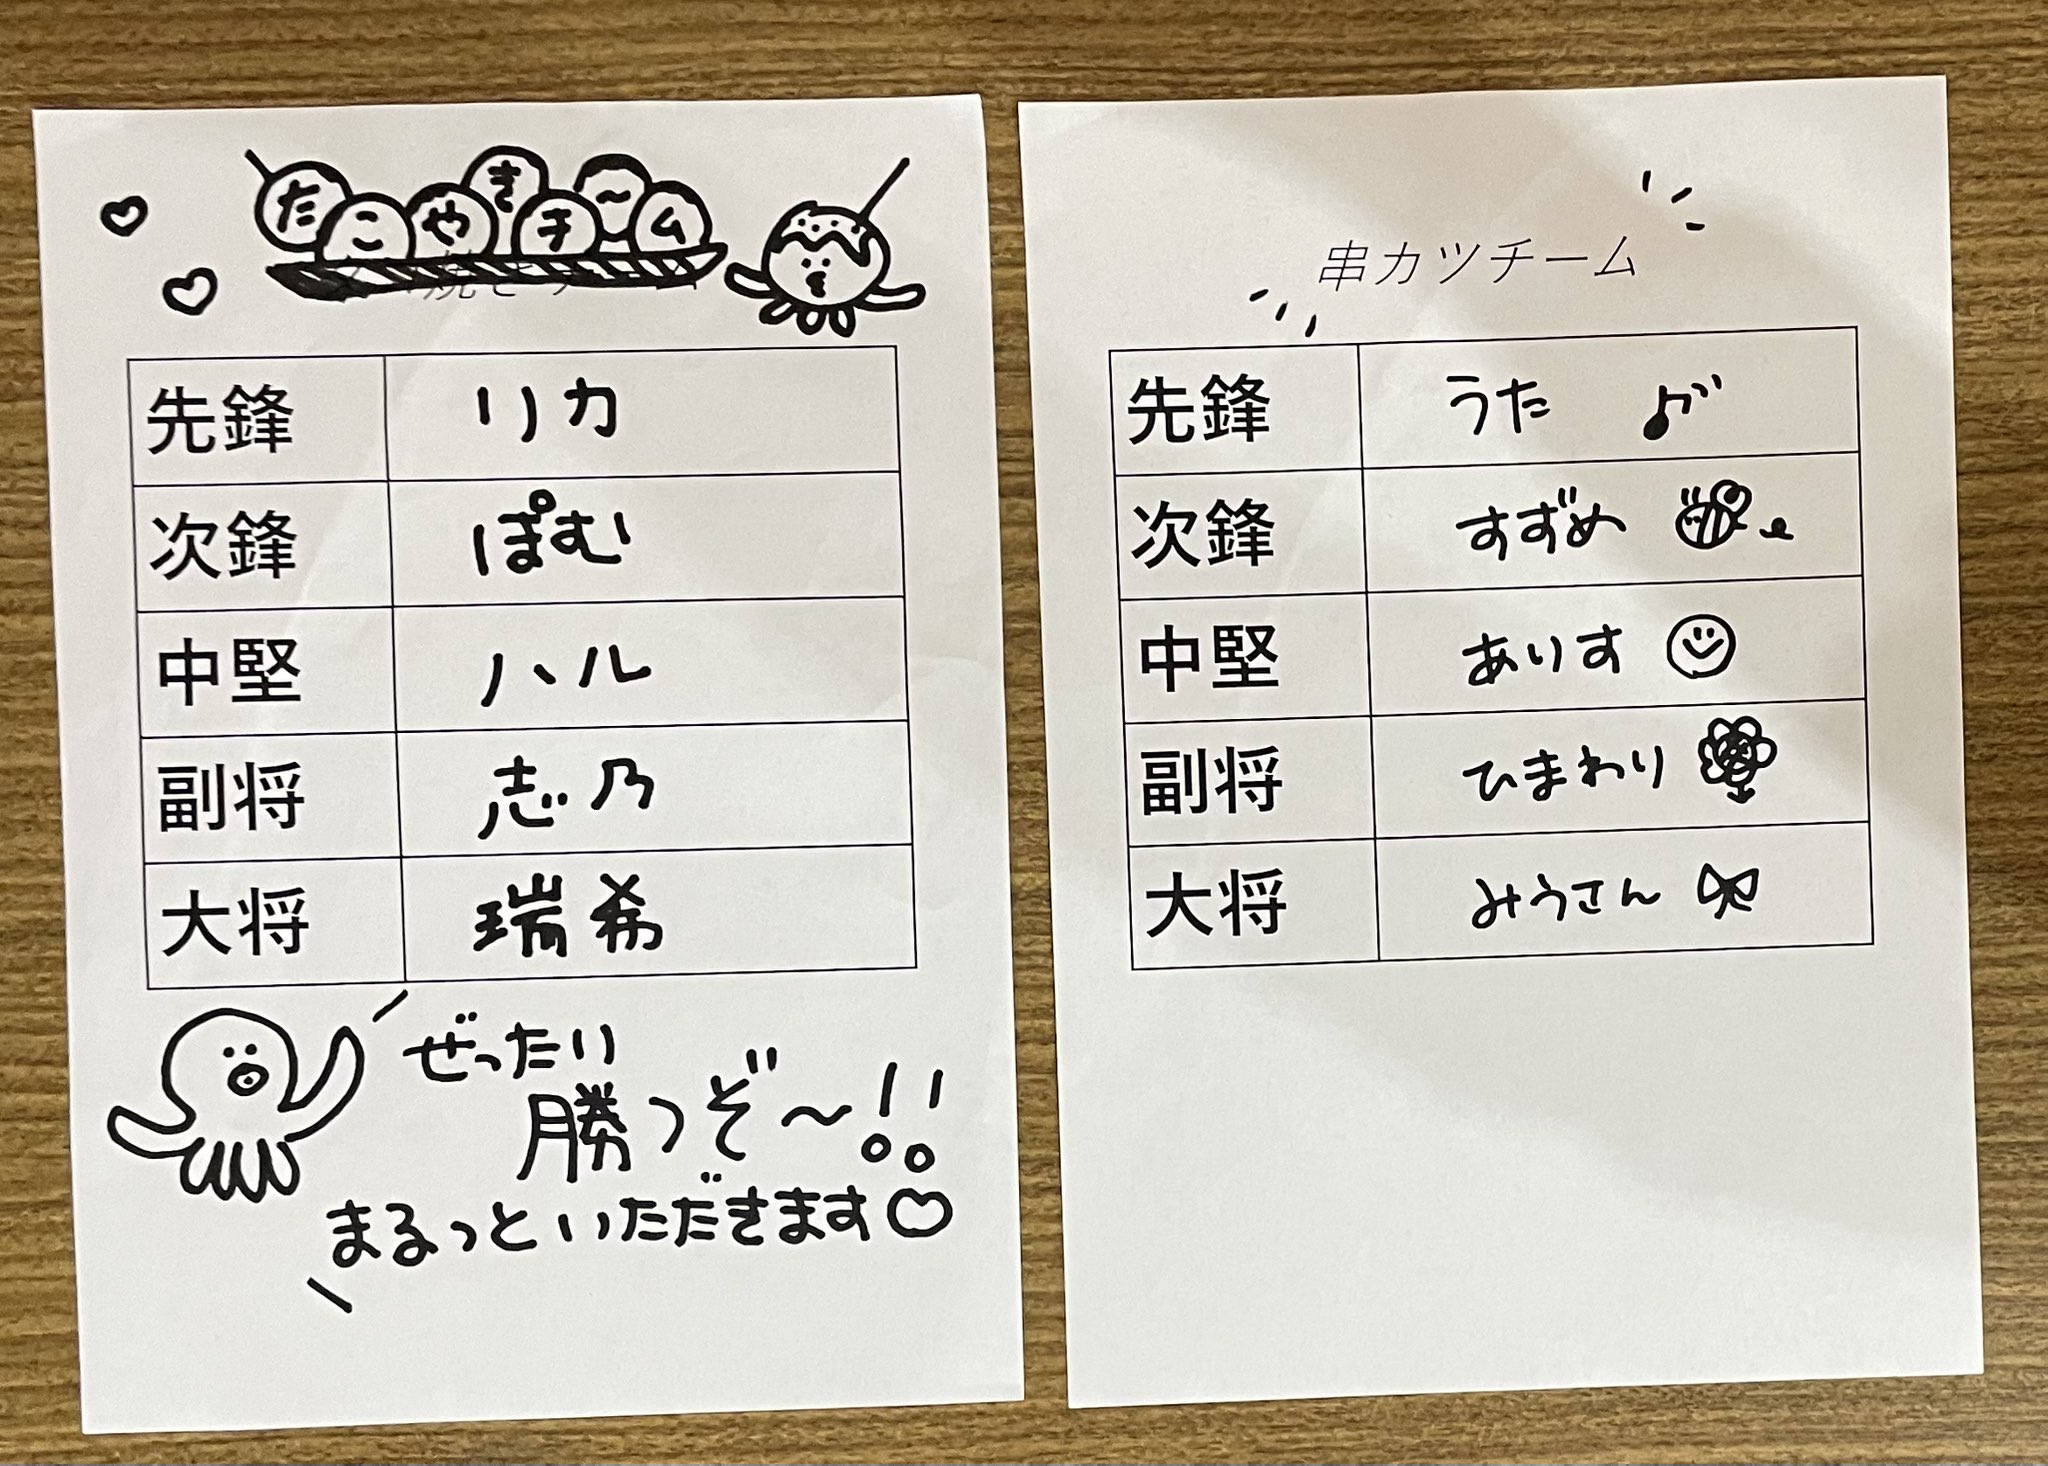 たこやきチ～ム
先鋒 リカ
次鋒 ぽむ
中堅 ハル
副将 志乃
大将 瑞希
ぜったい
勝つぞ～!!
まるっといただきます♡
串カツチーム
先鋒 うた ♪
次鋒 すずめ
中堅 ありす
副将 ひまわり
大将 みうさん